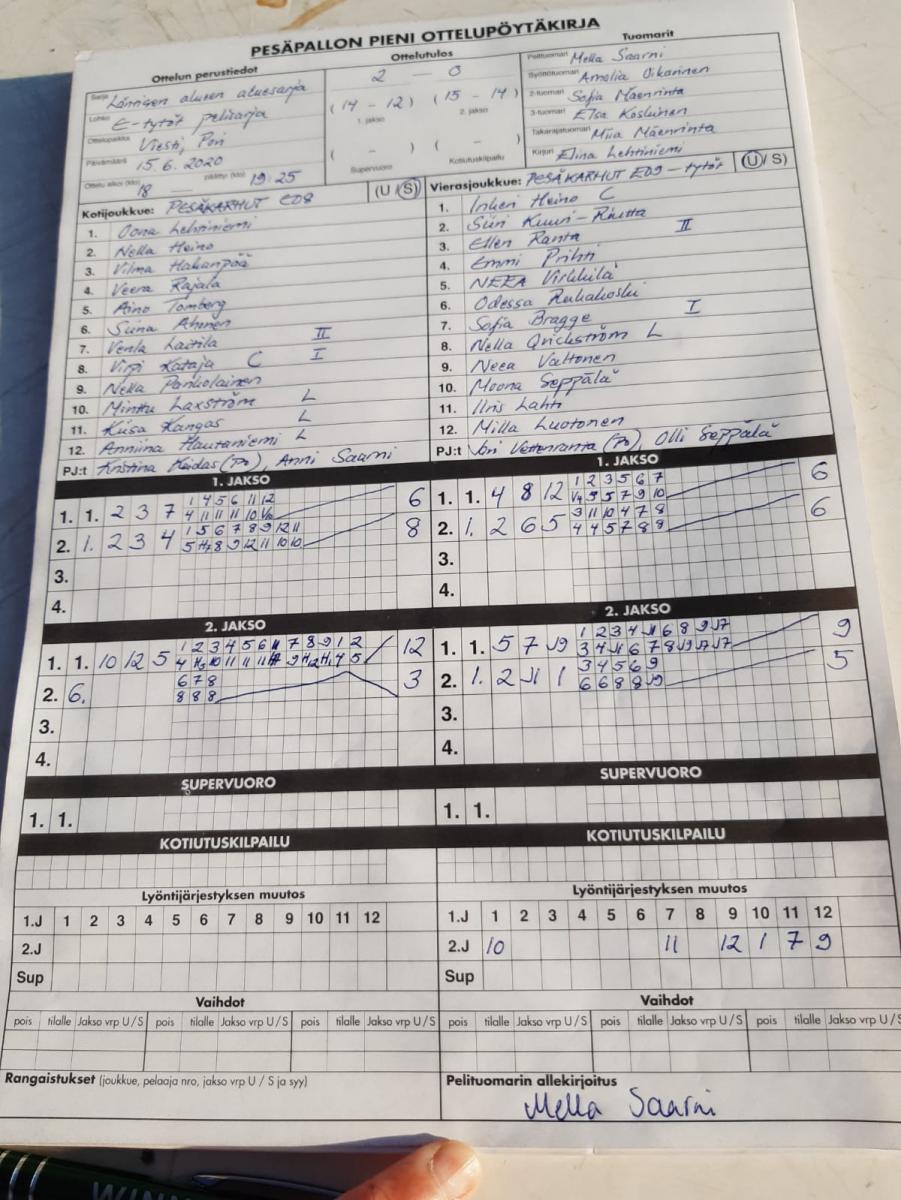 PESÄPALLON PIENI OTTELUPÖYTÄKIRJA
Ottelun perustiedot
Sarja Läntisen alueen aluesarja
Lohko E-tytöt pelisarja
Ottelupaikka Viesti, Pori
Päivämäärä 15.6.2020
Ottelu alkoi (klo) 18 — päättyi (klo) 19:25
Ottelutulos
2 — 0
(14 - 12) (15 - 14)
1. jakso 2. jakso
( - ) ( - )
Supervuoro Kotiutuskilpailu
Tuomarit
Pelituomari Mella Saarni
Syöttötuomari Amalia Oikarinen
2-tuomari Sofia Mäenrinta
3-tuomari Elsa Koskinen
Takarajatuomari Miia Mäenrinta
Kirjuri Elina Lehtiniemi
Kotijoukkue: PESÄKARHUT E08 (U / S)
1. Oona Lehtiniemi
2. Nella Heino
3. Vilma Hakanpää
4. Veera Rajala
5. Aino Tomberg
6. Siina Ahonen
7. Venla Laitila II
8. Virpi Kataja C I
9. Nella Pankolainen
10. Minttu Laxström L
11. Kiisa Kangas L
12. Anniina Hautaniemi L
PJ:t Kristina Keidas (Po), Anni Saarni
Vierasjoukkue: PESÄKARHUT E09-tytöt (U / S)
1. Inkeri Heino C
2. Siiri Kuuri-Riutta
3. Ellen Ranta II
4. Emmi Prihti
5. NEEA Virkkilä
6. Odessa Ruhakoski
7. Sofia Bragge I
8. Nella Qvickström L
9. Neea Valtonen
10. Moona Seppälä
11. Iiris Lahti
12. Milla Luotonen
PJ:t Jori Vettenranta (Po), Olli Seppälä
1. JAKSO
1 4 5 6 11 12
1. 1. 2 3 7 4 11 11 11 10 6
1 5 6 7 8 9 12 11
2. 1. 2 3 4 8 9 12 11 10 10 8
3.
4.
1. JAKSO
1 2 3 5 6 7
1. 1. 4 8 12 5 5 7 9 10 6
3 11 10 4 7 8
2. 1. 2 6 5 4 4 5 7 8 8 6
3.
4.
2. JAKSO
1 2 3 4 5 6 11 7 8 9 1 2
1. 1. 10 12 5 4 10 11 11 11 9 4 5 12
6 7 8
2. 6. 8 8 8 3
3.
4.
2. JAKSO
1 2 3 4 J1 6 8 9 J7
1. 1. 5 7 J9 3 4 J1 6 7 8 J9 J7 J7 9
3 4 5 6 9
2. 1. 2 J1 1 6 6 8 8 J9 5
3.
4.
SUPERVUORO
1. 1.
SUPERVUORO
1. 1.
KOTIUTUSKILPAILU
KOTIUTUSKILPAILU
Lyöntijärjestyksen muutos
1.J 1 2 3 4 5 6 7 8 9 10 11 12
2.J
Sup
Lyöntijärjestyksen muutos
1.J 1 2 3 4 5 6 7 8 9 10 11 12
2.J 10 11 12 1 7 9
Sup
Vaihdot
pois tilalle Jakso vrp U / S pois tilalle Jakso vrp U / S pois tilalle Jakso vrp U / S
Vaihdot
pois tilalle Jakso vrp U / S pois tilalle Jakso vrp U / S pois tilalle Jakso vrp U / S
Rangaistukset (joukkue, pelaaja nro, jakso vrp U / S ja syy)
Pelituomarin allekirjoitus
Mella Saarni